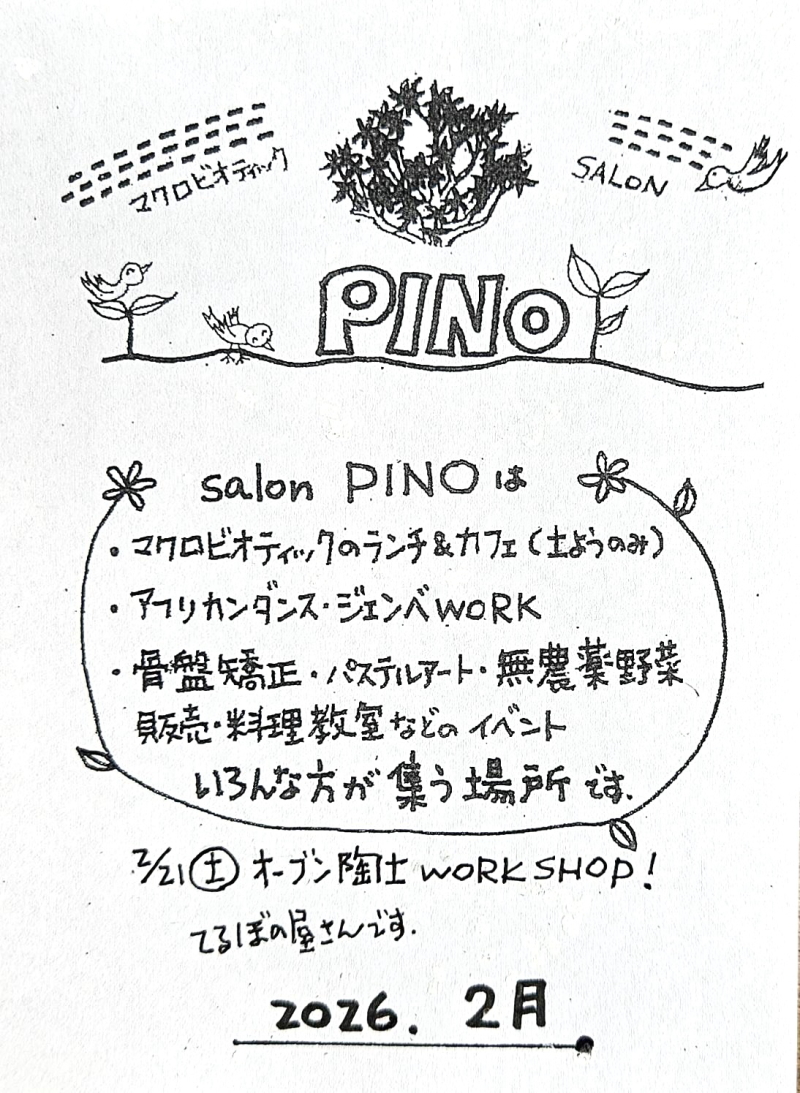 マクロビオティック
SALON
PINO
salon PINOは
・マクロビオティックのランチ&カフェ(土ようのみ)
・アフリカンダンス・ジェンベWORK
・骨盤矯正・パステルアート・無農薬野菜
販売・料理教室などのイベント
いろんな方が集う場所です.
2/21(土)オーブン陶土WORK SHOP!
てるぼの屋さんです.
2026. 2月